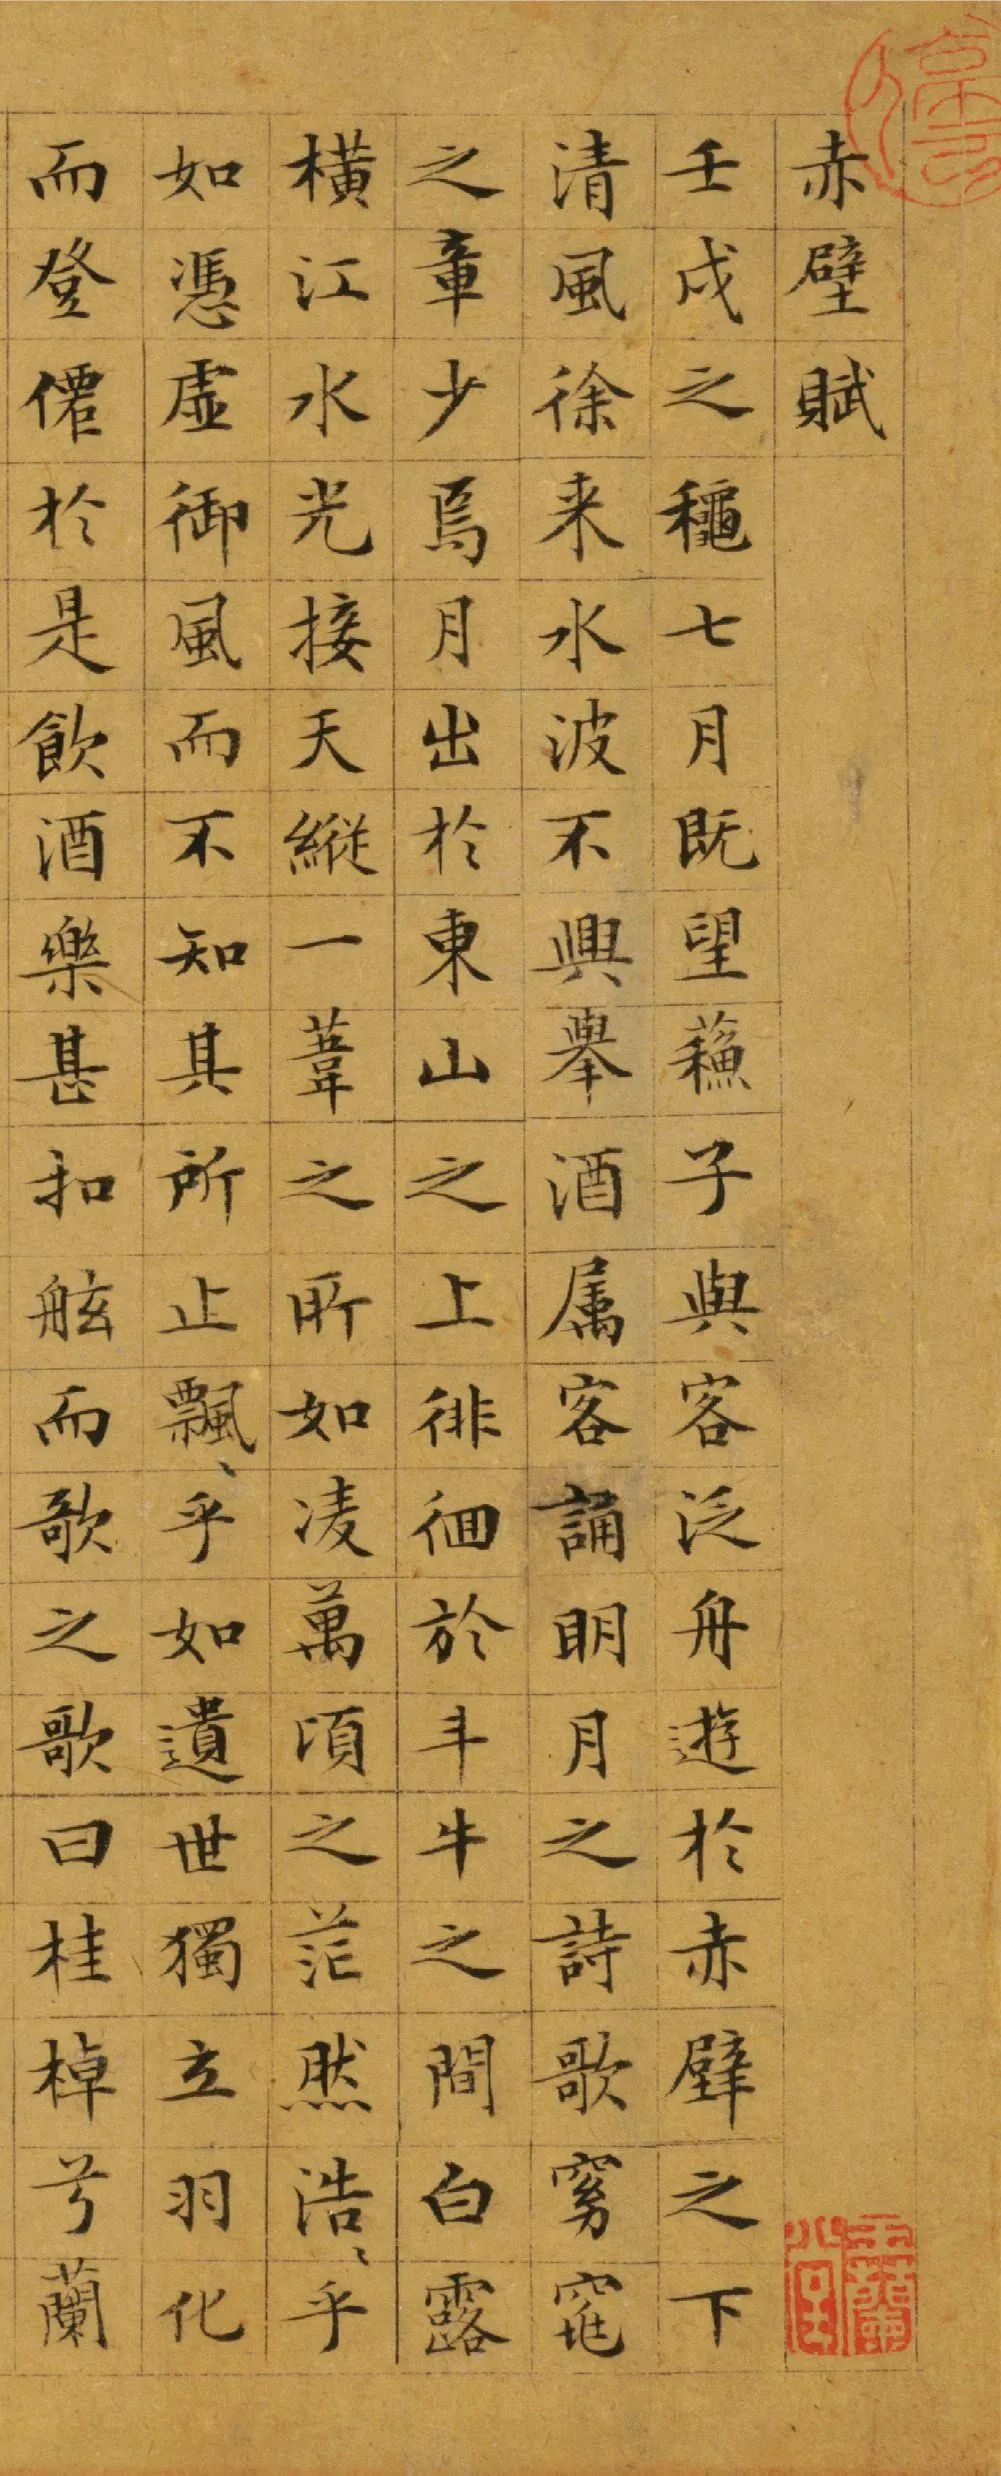 赤壁賦
壬戌之龝七月既望蘓子與客泛舟遊於赤壁之下
清風徐来水波不興舉酒属客誦明月之詩歌窈窕
之章少焉月出於東山之上徘徊於斗牛之間白露
橫江水光接天縱一葦之所如凌萬頃之茫然浩〻乎
如憑虚御風而不知其所止飄〻乎如遺世獨立羽化
而登僊於是飲酒樂甚扣舷而歌之歌曰桂棹兮蘭